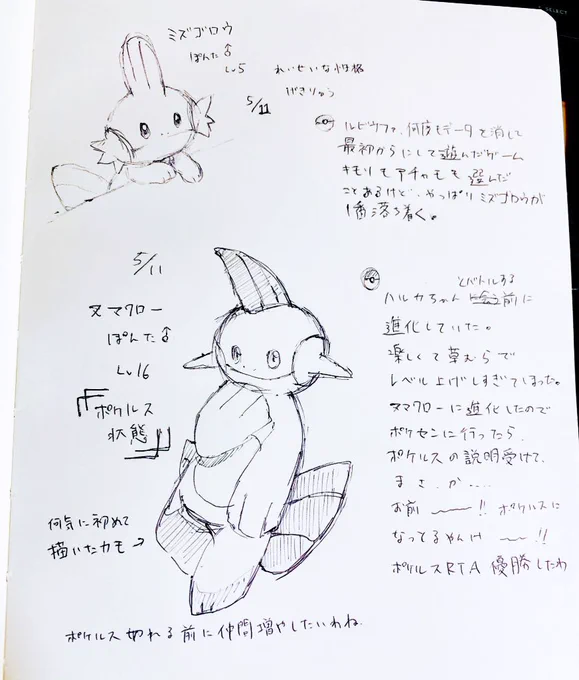 ミズゴロウ
ぽんた♂
Lv5
れいせいな性格
げきりゅう
5/11
ルビサファ、何度もデータを消して
最初からにして遊んだゲーム
キモリもアチャモも選んだ
ことあるけど、やっぱりミズゴロウが
1番落ち着く。
5/11
ヌマクロー
ぽんた♂
Lv16
『ポケルス
状態』
とバトルする
ハルカちゃん 前に
進化していた。
楽しくて草むらで
レベル上げしすぎてしまった。
ヌマクローに進化したので
ポケセンに行ったら、
ポケルスの説明受けて、
まさ、か....
お前 〜〜!! ポケルスに
なってるやんけ 〜!!
ポケルスRTA 優勝したわ
何気に初めて
描いたカモ→
ポケルス切れる前に仲間増やしたいわね